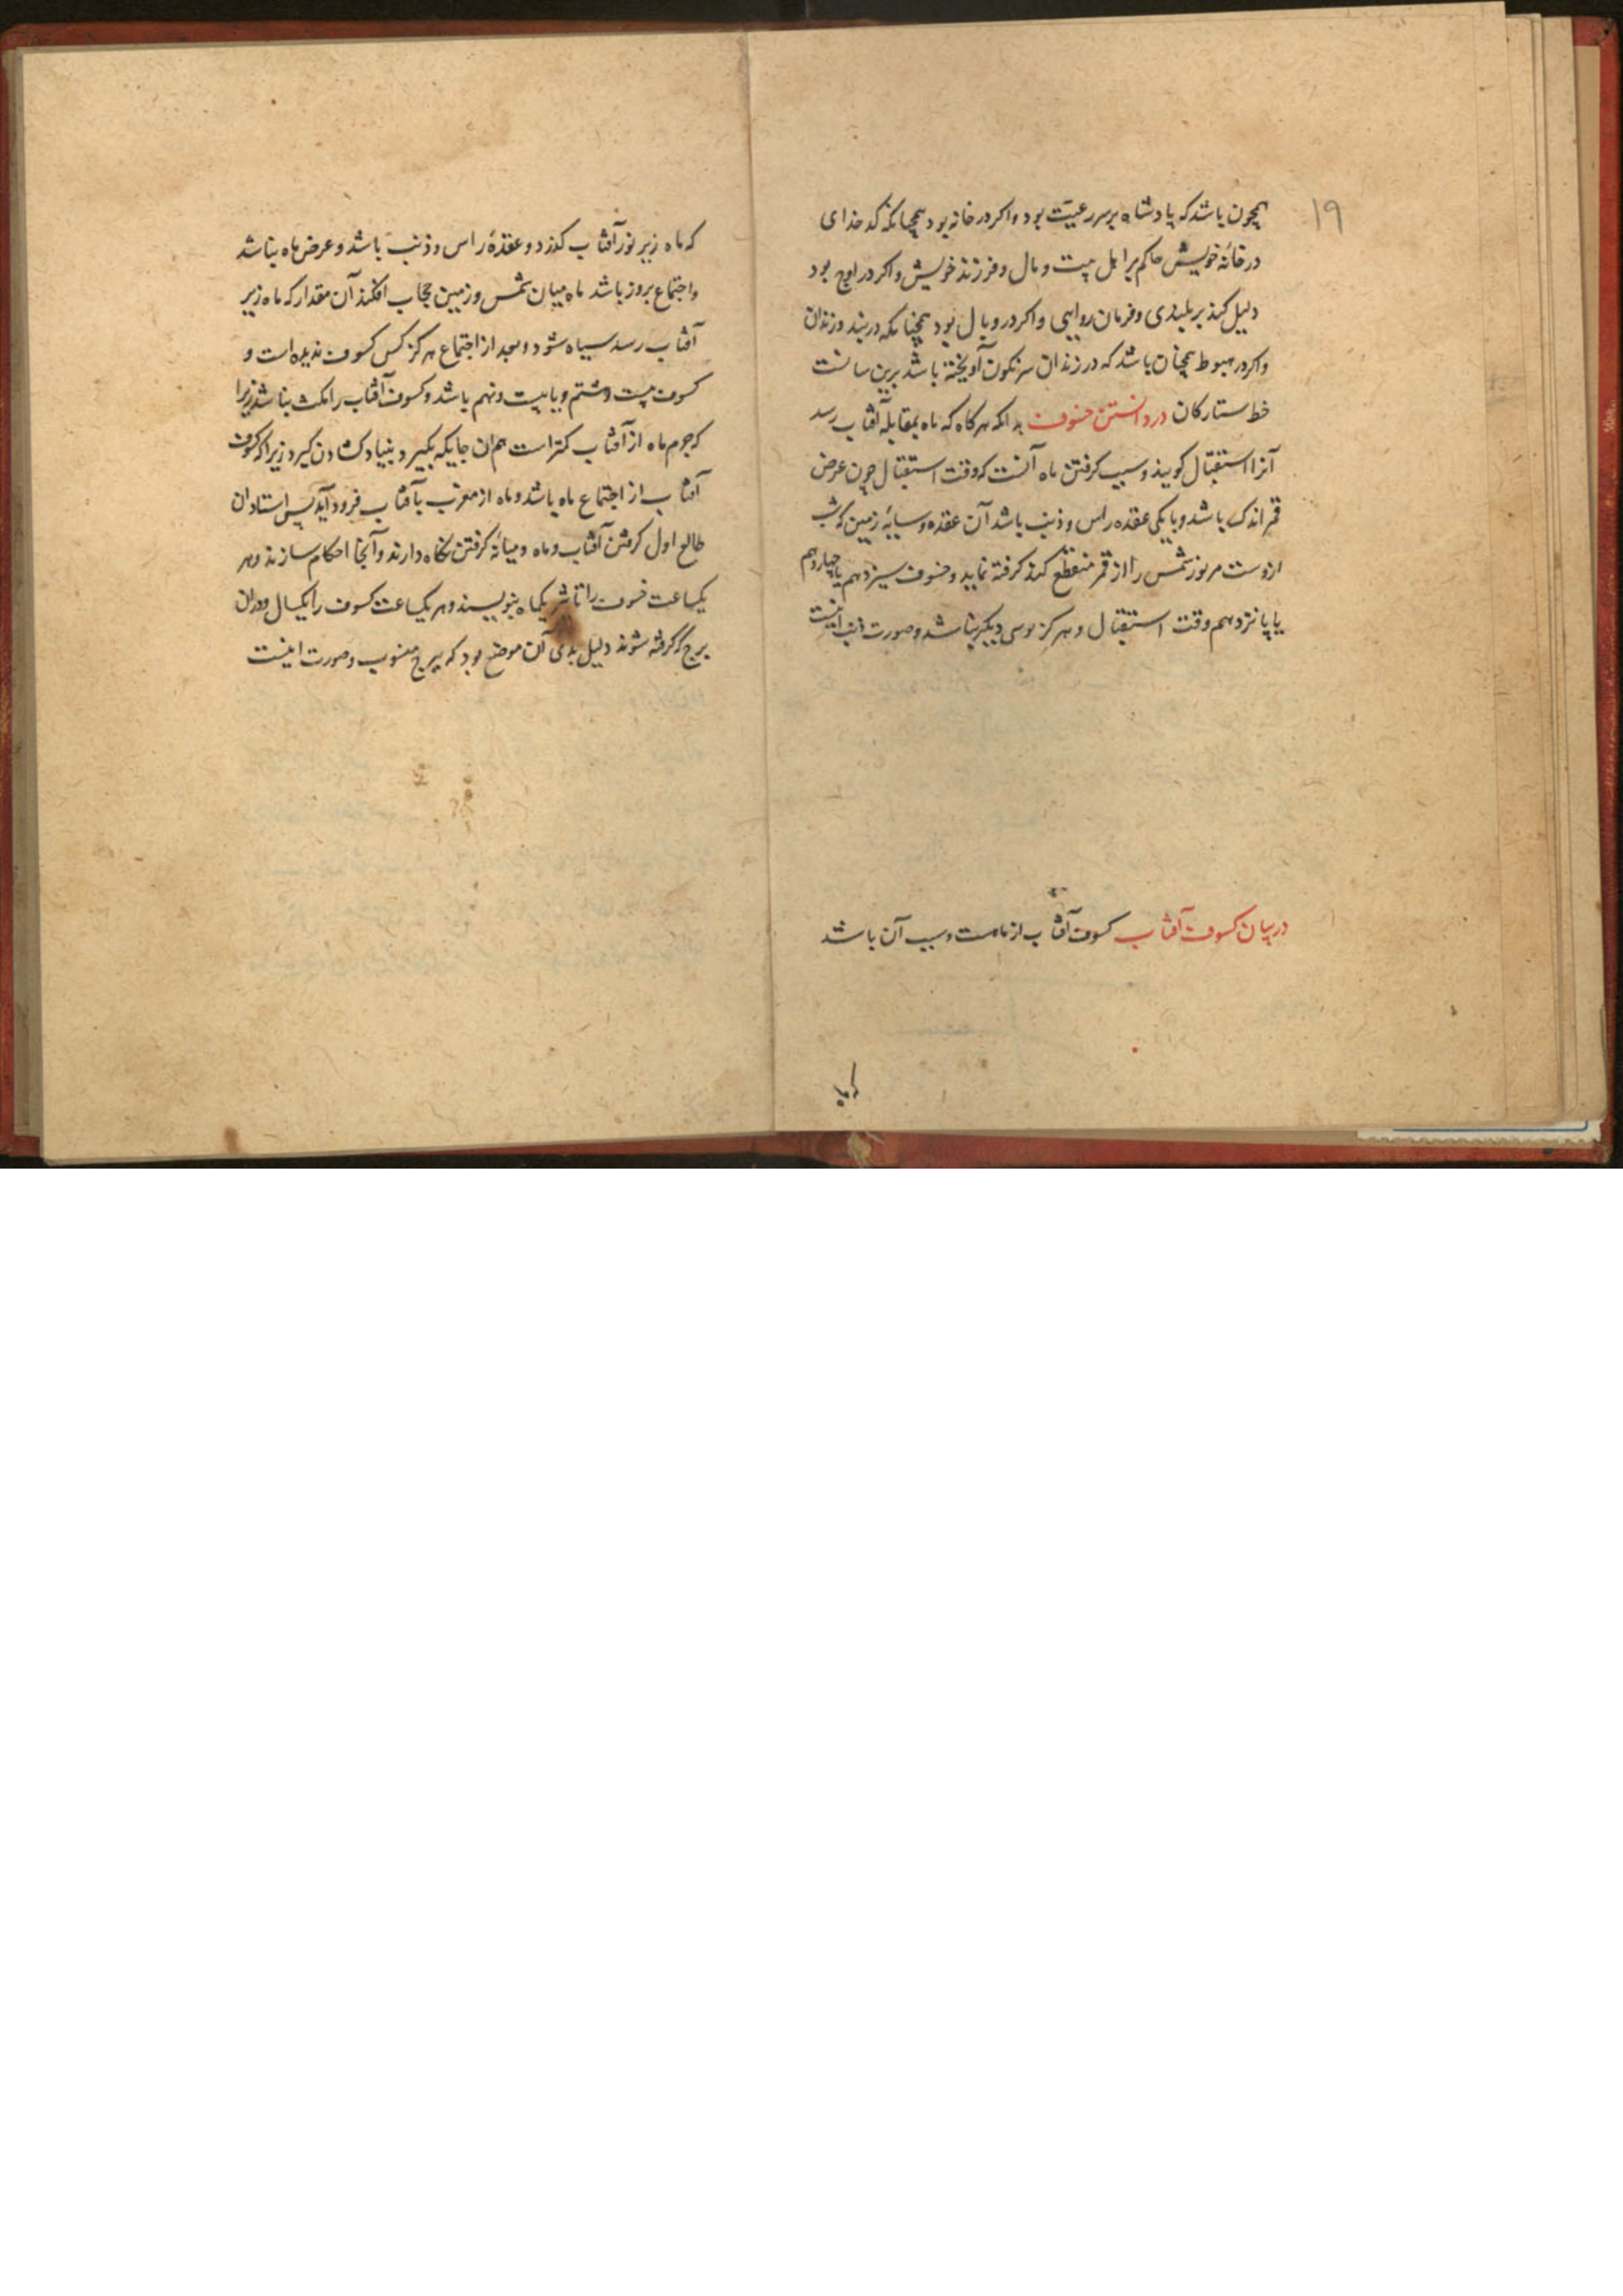 ۱۹
همچون باشد که پادشاه بر سر رعیت بود و اکر در خانه بود همچنانکه کدخدای
در خانهٔ خویش حاکم بر اهل بیت و مال و فرزند خویش و اکر در اوج بود
دلیل کند بر بلندی و فرمان روایی و اکر در وبال بود همچنانکه در بند و زندان
و اکر در هبوط همچنان باشد که در زندان سرنکون آویخته باشد برین سانست
خط ستارکان در دانستن خسوف بدانکه هرکاه که ماه بمقابلهٔ آفتاب رسد
آنرا استقبال کویند و سبب کرفتن ماه آنست که وقت استقبال چون عرض
قمر اندک باشد و با یکی عقده راس و ذنب باشد آن عقده و سایهٔ زمین که شب
ازوست مر نور شمس را از قمر منقطع کند کرفته نماید و خسوف سیزدهم یا چهاردهم
یا پانزدهم وقت استقبال و هرکز نوسی دیکر نباشد و صورت اینست
در بیان کسوف آفتاب کسوف آفتاب از ماهست و سبب آن باشد
که ماه
که ماه زیر نور آفتاب کذرد و عقدهٔ راس و ذنب باشد و عرض ماه نباشد
و اجتماع بروز باشد ماه میان شمس و زمین حجاب افکند آن مقدار که ماه زیر
آفتاب رسد سیاه شود و بعد از اجتماع هرکز کس کسوف ندیده است و
کسوف بیست و هشتم و یا بیست و نهم باشد و کسوف آفتاب را مکث نباشد زیرا
که جرم ماه از آفتاب کمتر است همان جایکه بکیرد بنیاد کشادن کیرد زیرا که کسوف
آفتاب از اجتماع ماه باشد و ماه از مغرب بآفتاب فرود آید پس استادان
طالع اول کرفتن آفتاب و ماه و میانهٔ کرفتن نکاه دارند و آنجا احکام سازند و هر
یکساعت خسوف را تاثیر یکماه بنویسند و هر یکساعت کسوف را یکسال و در آن
برج که کرفته شوند دلیل بدی آن موضع بود که ببرج منسوب و صورت اینست